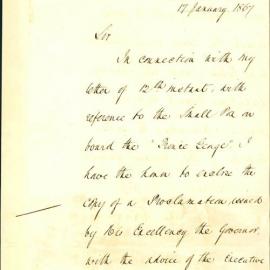 17 January 1867
Sir
In connection with my
letter of 12th instant, with
reference to the Small Pox on
board the "Prince George" I
have the honor to enclose the
copy of a Proclamation, issued
by His Excellency the Governor
with the advice of the Executive